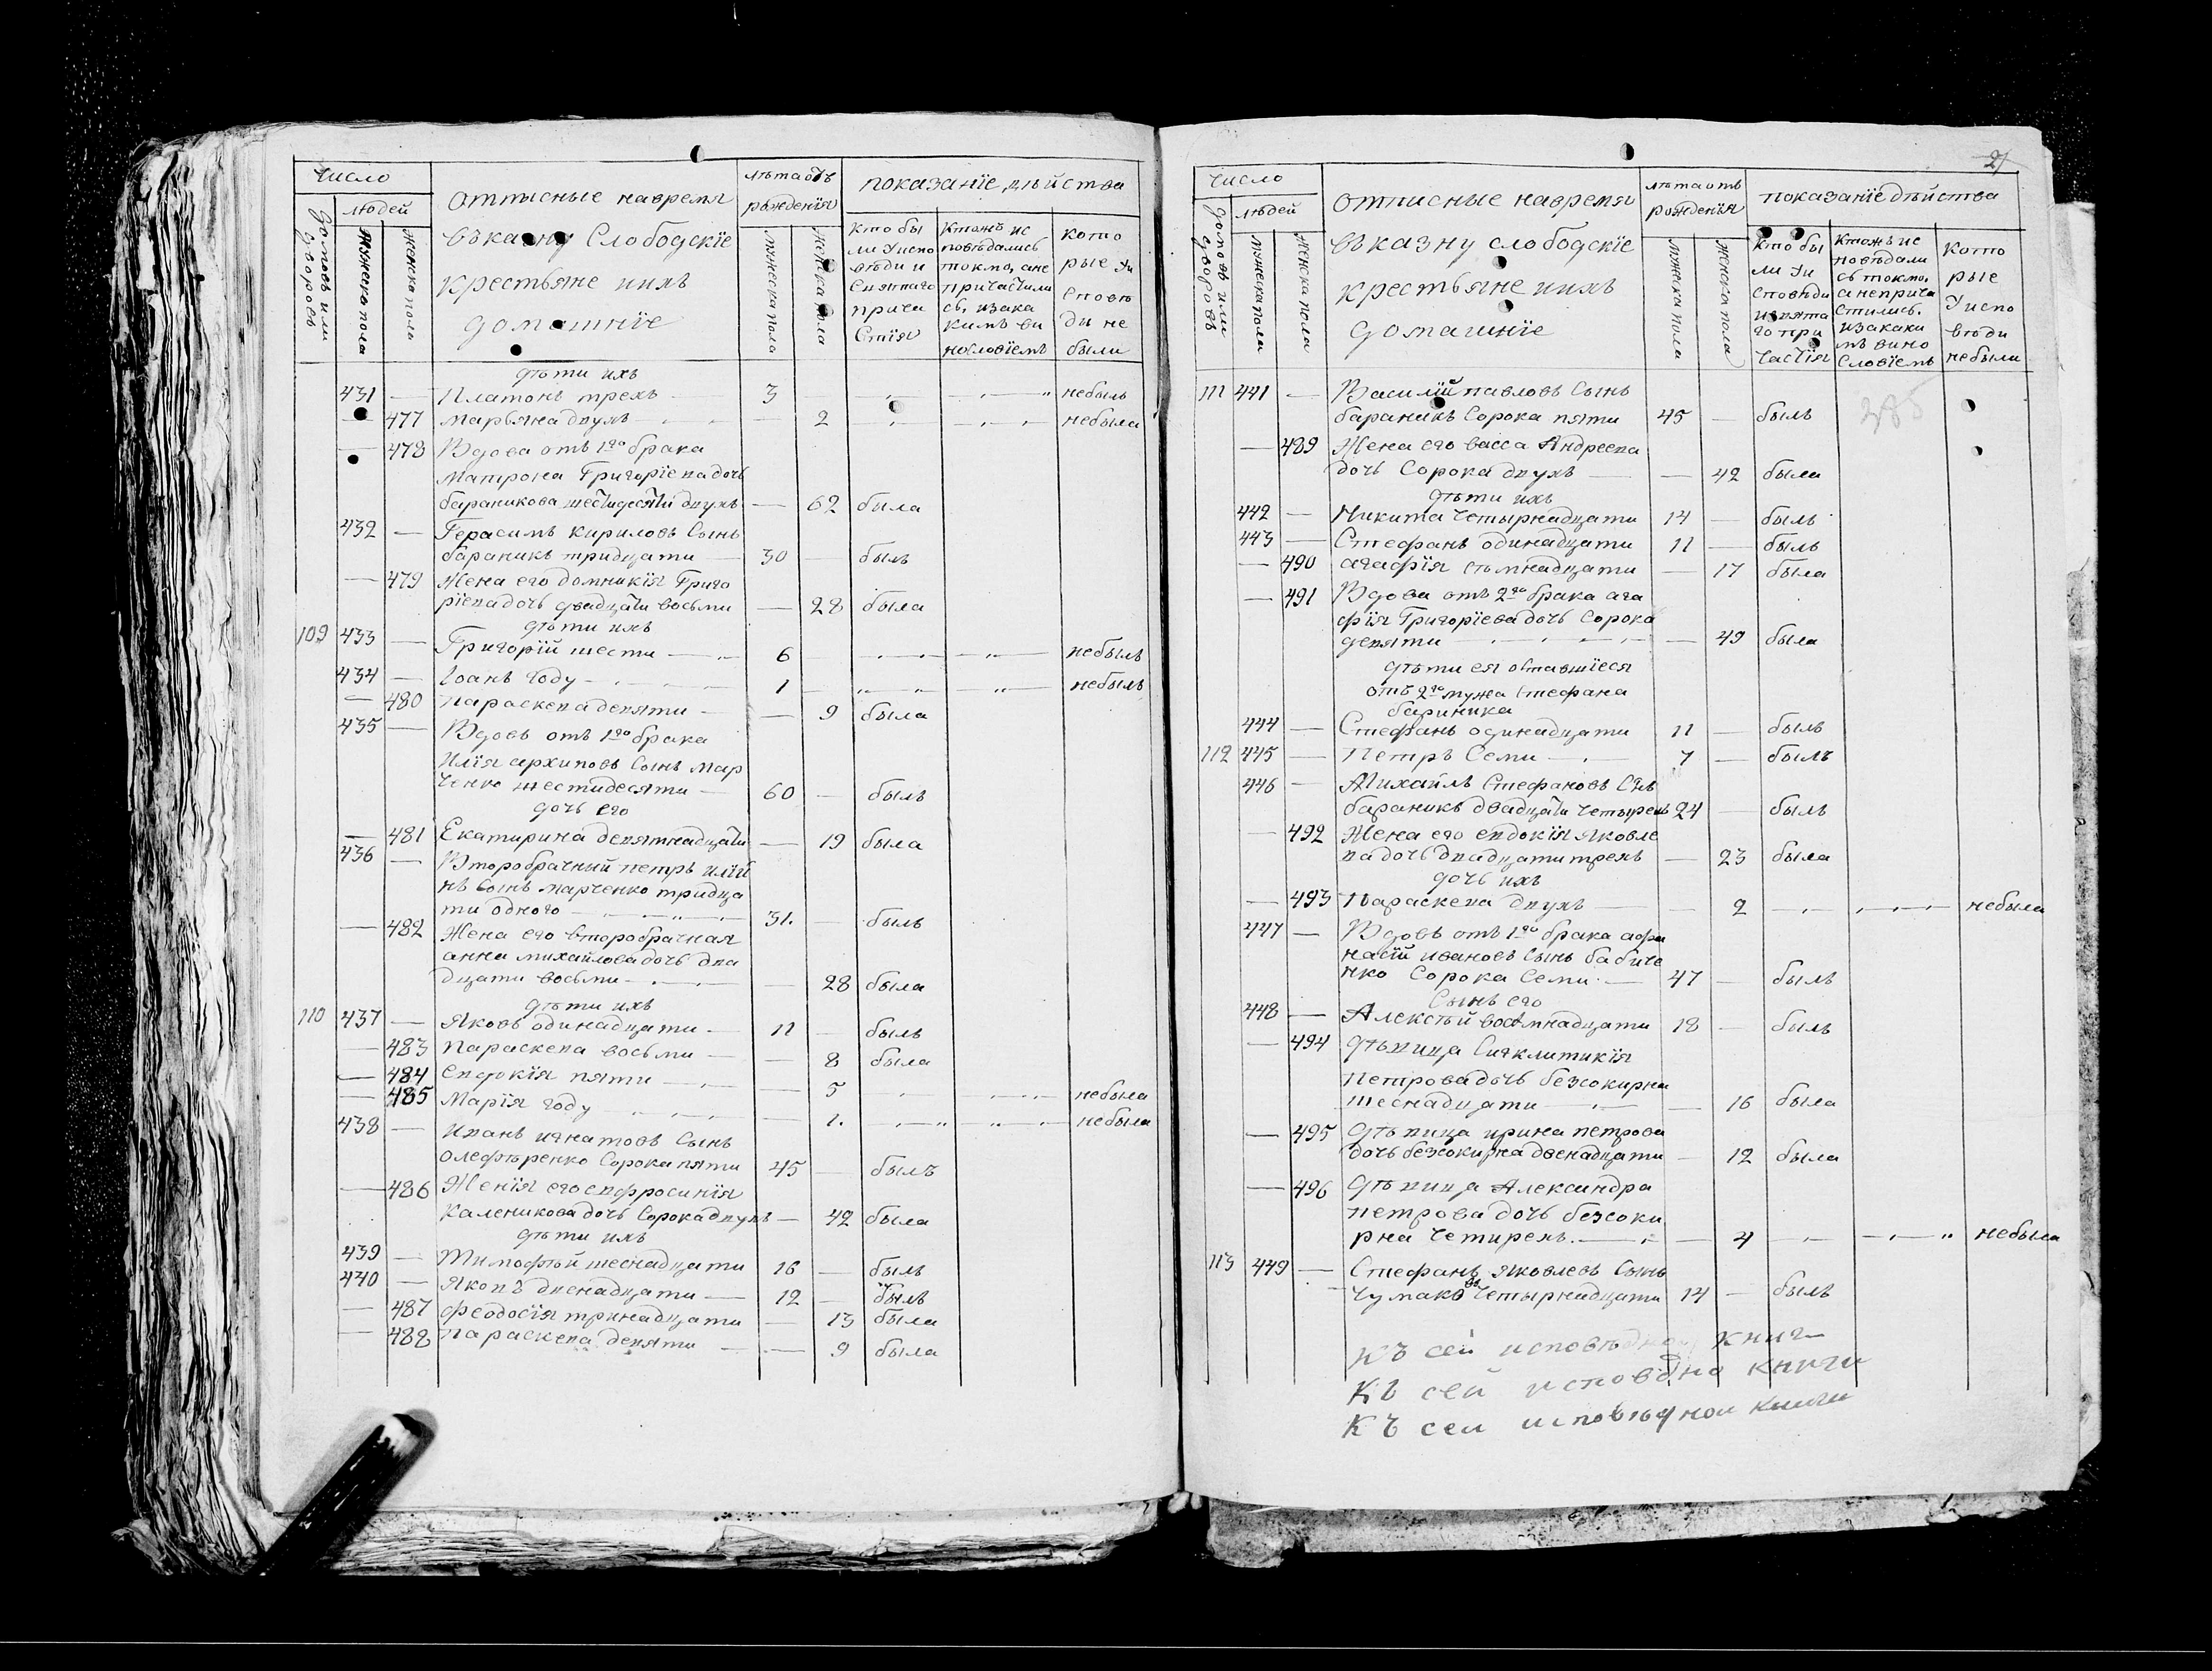 число
людей
домовъ или дворовъ
мужеска пола
женска пола
отписные навремя
въказну слободскїе
крестьяне иихъ
домашнїе
лѣта отъ
рожденїя
мужеска пола
женска пола
показанїе дѣйства
кто бы
ли Уиспо
вѣди и
святаго
прича
стїя
ктожъ ис
повѣдались
токмо, ане
причастили
сь, изака
кимъ ви
нословїемъ
кото
рые Уи
сповѣ
ди не
были
дѣти ихъ
431 — Платонъ трехъ 3 небылъ
— 477 марьяна двухъ — 2 небыла
— 478 Вдова отъ 1го брака
матрона Григорїева дочь
бараникова шестидесяти двухъ — 62 была
432 — Герасимъ кириловъ сынъ
бараникъ тридцати — 30 — былъ
— 479 Жена его домникїя Григо
рїева дочь двадцати восьми — 28 была
дѣти ихъ
109 433 — Григорїй шести — 6 небылъ
434 — Іоанъ году — 1 небылъ
— 480 параскева девяти — — 9 была
435 — Вдовъ отъ 1го брака
Илїя архиповъ сынъ мар
ченко шестидесяти — 60 — былъ
дочь его
— 481 Екатирина девятнадцати — 19 была
436 — Второбрачный петръ илїи
нъ сынъ марченко тридца
ти одного — 31. былъ
— 482 Жена его второбрачная
анна михайлова дочь два
дцати восьми — — 28 была
дѣти ихъ
110 437 — Яковъ одинадцати — 11 — былъ
— 483 параскева восьми — — 8 была
— 484 евдокїя пяти — — 5 небыла
— 485 Марїя году — — 1. небыла
438 — иванъ игнатовъ сынъ
олефѣренко сорока пяти 45 — былъ
— 486 Женїя его евфросинїя
каленикова дочь сорока двухъ — 42 была
дѣти ихъ
439 — Тимофѣй шеснадцати 16 — былъ
440 — Яковъ двенадцати — 12 — былъ
— 487 феодосїя тринадцати — 13 была
— 488 параскева девяти — — 9 была
21
число
людей
домовъ или дворовъ
мужеска пола
женска пола
отписные навремя
въказну слободскїе
крестьяне иихъ
домашнїе
лѣта отъ
рожденїя
мужеска пола
женска пола
показанїе дѣйства
кто бы
ли Уи
сповѣди
исвята
го при
частїя
ктожъ ис
повѣдали
сь токмо,
а неприча
стились.
изакаки
мъ вино
словїемъ
кото
рые
Уиспо
вѣди
небыли
111 441 — Василїй павловъ сынъ
бараникъ сорока пяти 45 — былъ
— 489 Жена его васса Андреева
дочь сорока двухъ — — 42 была
дѣти ихъ
442 — Никита четырнадцати 14 — былъ
443 — Стефанъ одинадцати 11 — былъ
— 490 агафїя семнадцати — 17 была
— 491 Вдова отъ 2го брака ага
фїя Григорїева дочь сорока
девяти — 49 была
дѣти ея оставшїеся
отъ 2го мужа стефана
бариника
444 — Стефанъ одинадцати 11 — былъ
112 445 — Петръ семи — 7 — былъ
446 — Михайлъ Стефановъ снъ
бараникъ двадцати четырехъ 24 — былъ
— 492 Жена его евдокїя яковле
ва дочь двадцати трехъ — 23 была
дочь ихъ
— 493 Параскева двухъ — — 2 — небыла
447 — Вдовъ отъ 1го брака афа
насїй ивановъ сынъ бабиче
нко сорока семи — 47 — былъ
сынъ его
448 — Алексѣй восмнадцати 18 — былъ
— 494 дѣвица сигклитикїя
петрова дочь безсокирна
шеснадцати — — 16 была
— 495 дѣвица ирина петрова
дочь безсокирна двенадцати — 12 была
— 496 дѣвица Александра
петрова дочь безсоки
рна четирехъ. — — 4 — небыла
113 449 — Стефанъ яковлевъ сынъ
чумаковъ четырнадцати 14 — былъ
Къ сей исповѣдно книг
Къ сей исповѣдно книги
Къ сеи исповѣднои книги